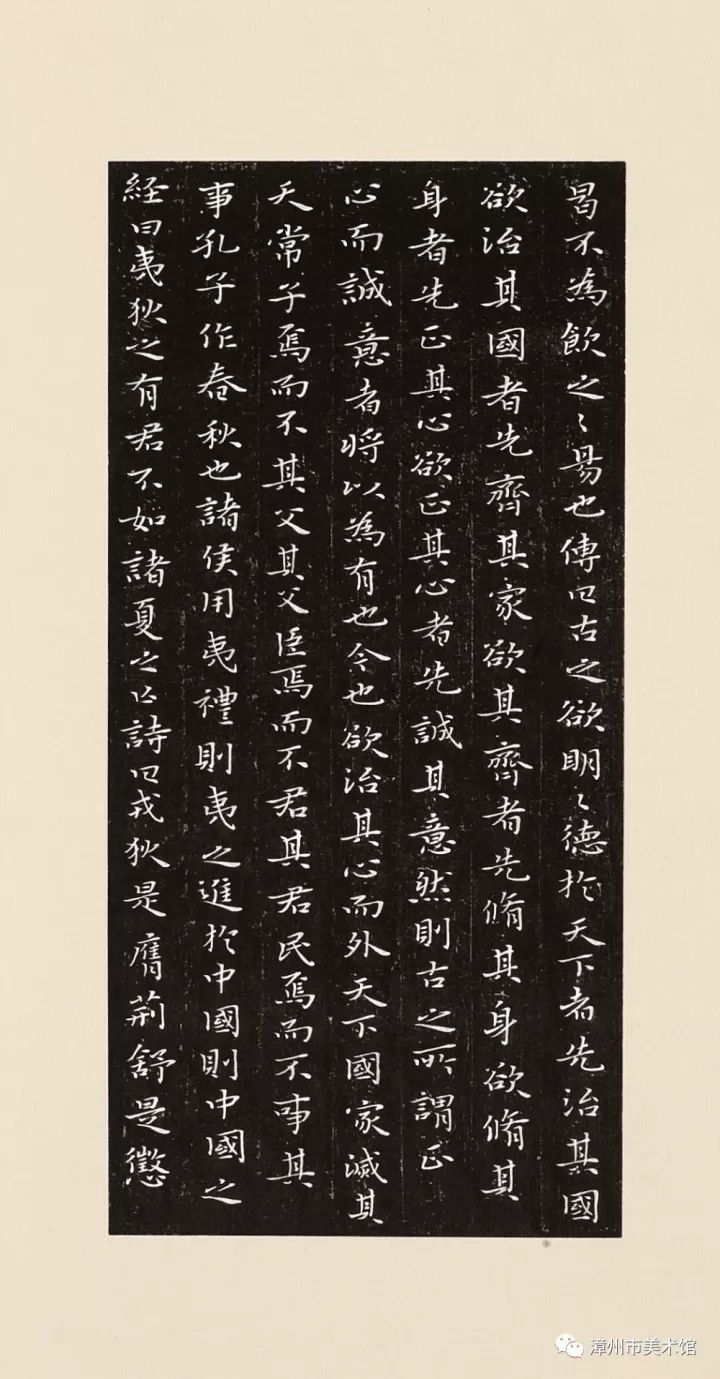 曷不為飲之〻易也傳曰古之欲明〻德於天下者先治其國
欲治其國者先齊其家欲其齊者先脩其身欲脩其
身者先正其心欲正其心者先誠其意然則古之所謂正
心而誠意者將以為有也今也欲治其心而外天下國家滅其
天常子焉而不其父其父臣焉而不君其君民焉而不事其
事孔子作春秋也諸侯用夷禮則夷之進於中國則中國之
経曰夷狄之有君不如諸夏之亡詩曰戎狄是膺荊舒是懲
漳州市美术馆